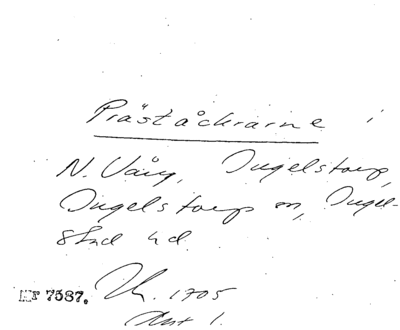 Präståckrarne i
N. Vång, Ingelstorp,
Ingelstorp sn, Ingel-
stad hd.
Nr 7587. 1705
Akt 1.